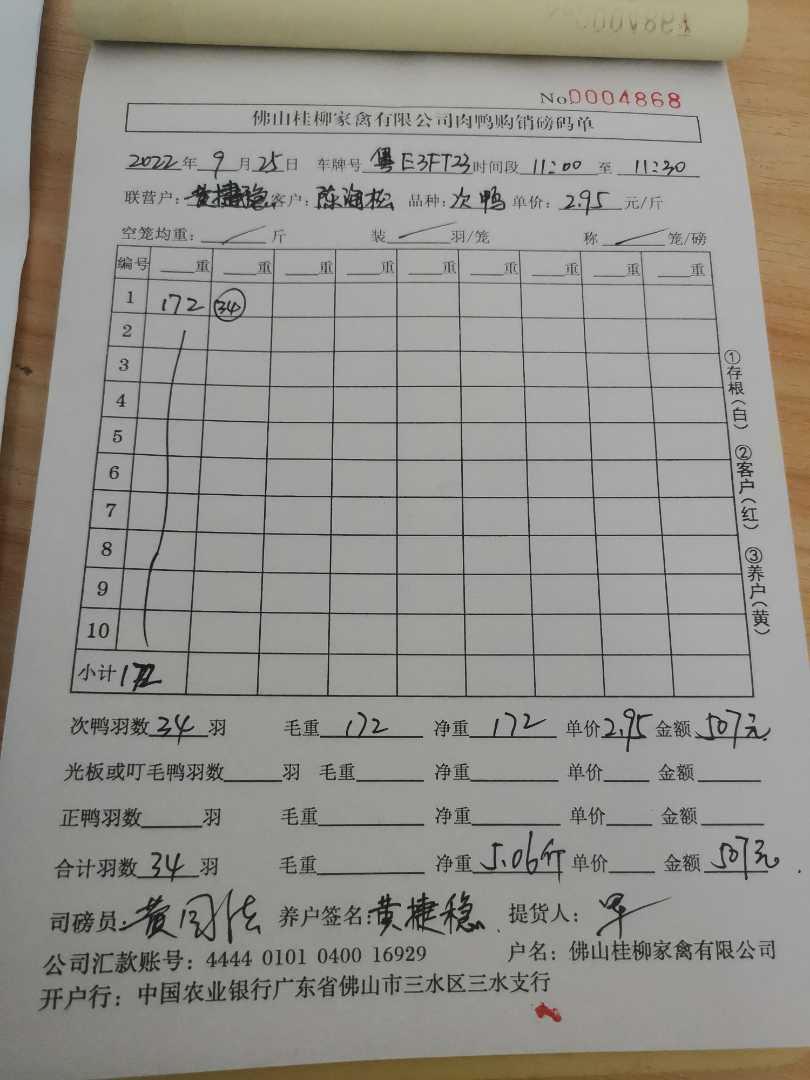 No 0004868
佛山桂柳家禽有限公司肉鸭购销磅码单
2022年9月25日 车牌号 粤E3FT23 时间段 11:00 至 11:30
联营户：黄捷稳 客户：陈润松 品种：次鸭 单价：2.95 元/斤
空笼均重： 斤 装 羽/笼 称 笼/磅
编号 重 重 重 重 重 重 重 重 重
1 172 34
2
3
4
5
6
7
8
9
10
小计 172
①存根（白） ②客户（红） ③养户（黄）
次鸭羽数 34 羽 毛重 172 净重 172 单价 2.95 金额 507元
光板或叮毛鸭羽数 羽 毛重 净重 单价 金额
正鸭羽数 羽 毛重 净重 单价 金额
合计羽数 34 羽 毛重 净重 5.06斤 单价 金额 507元
司磅员： 养户签名：黄捷稳 提货人：
公司汇款账号：4444 0101 0400 16929 户名：佛山桂柳家禽有限公司
开户行：中国农业银行广东省佛山市三水区三水支行